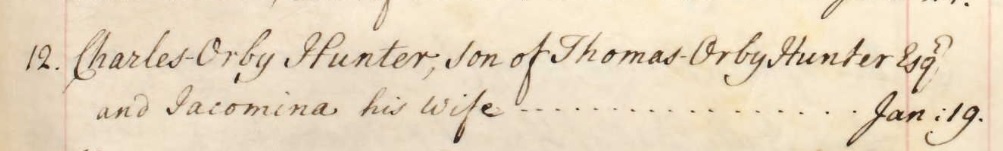 12. Charles-Orby Hunter, son of Thomas-Orby Hunter Esqr
and Jacomina his Wife - - - - - - - - - - - - - - - - Jan: 19.